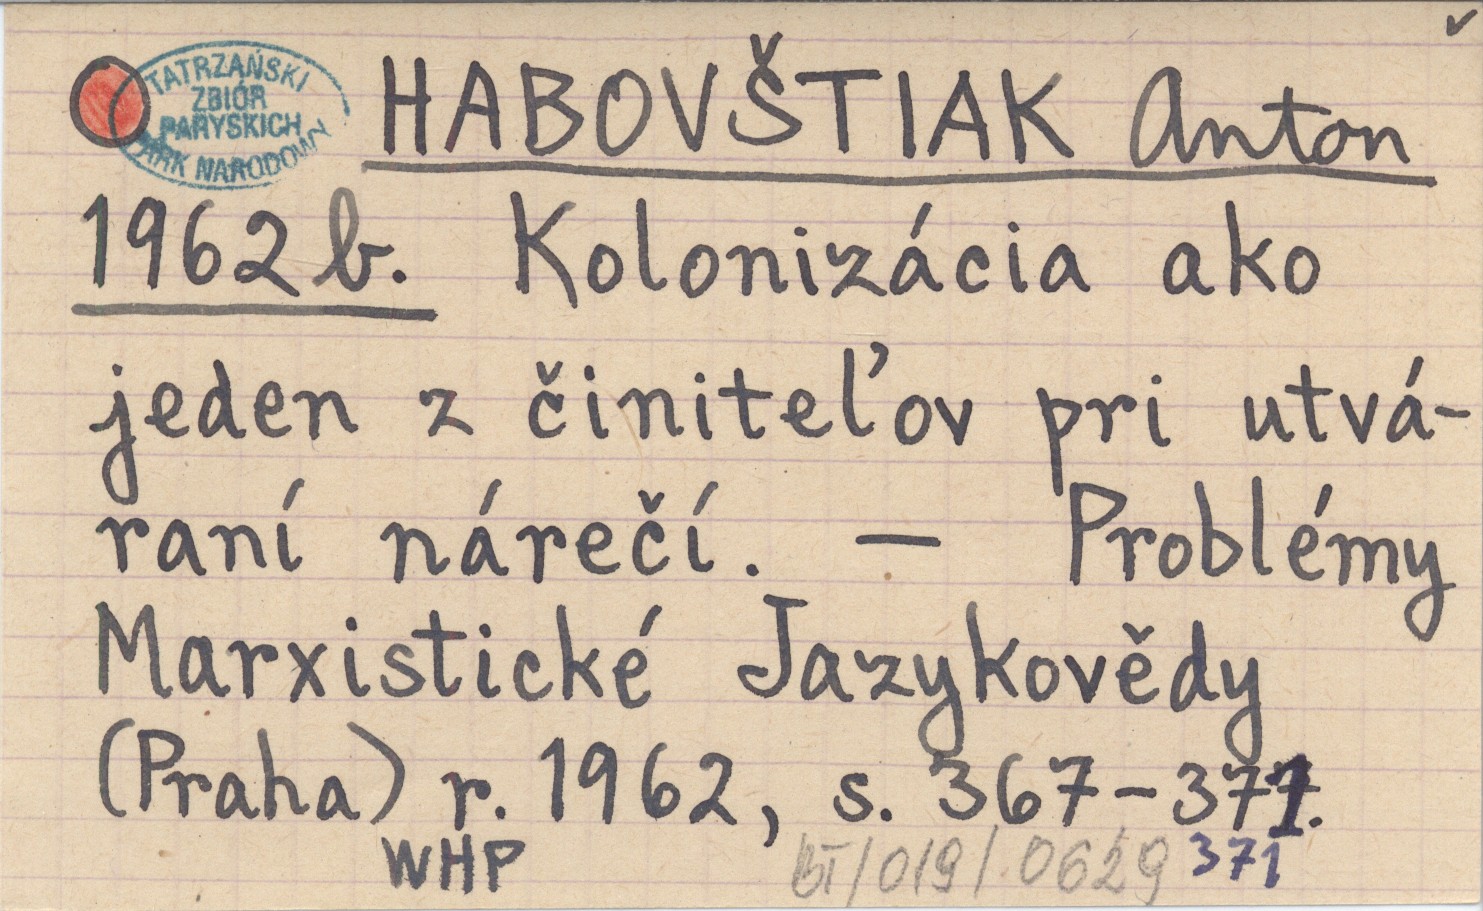 TATRZAŃSKI
ZBIÓR
PARYSKICH
PARK NARODOWY
HABOVŠTIAK Anton
1962 b. Kolonizácia ako
jeden z činiteľov pri utvá-
raní nárečí. — Problémy
Marxistické Jazykovědy
(Praha) r. 1962, s. 367-371.
WHP BT/019/0629 371